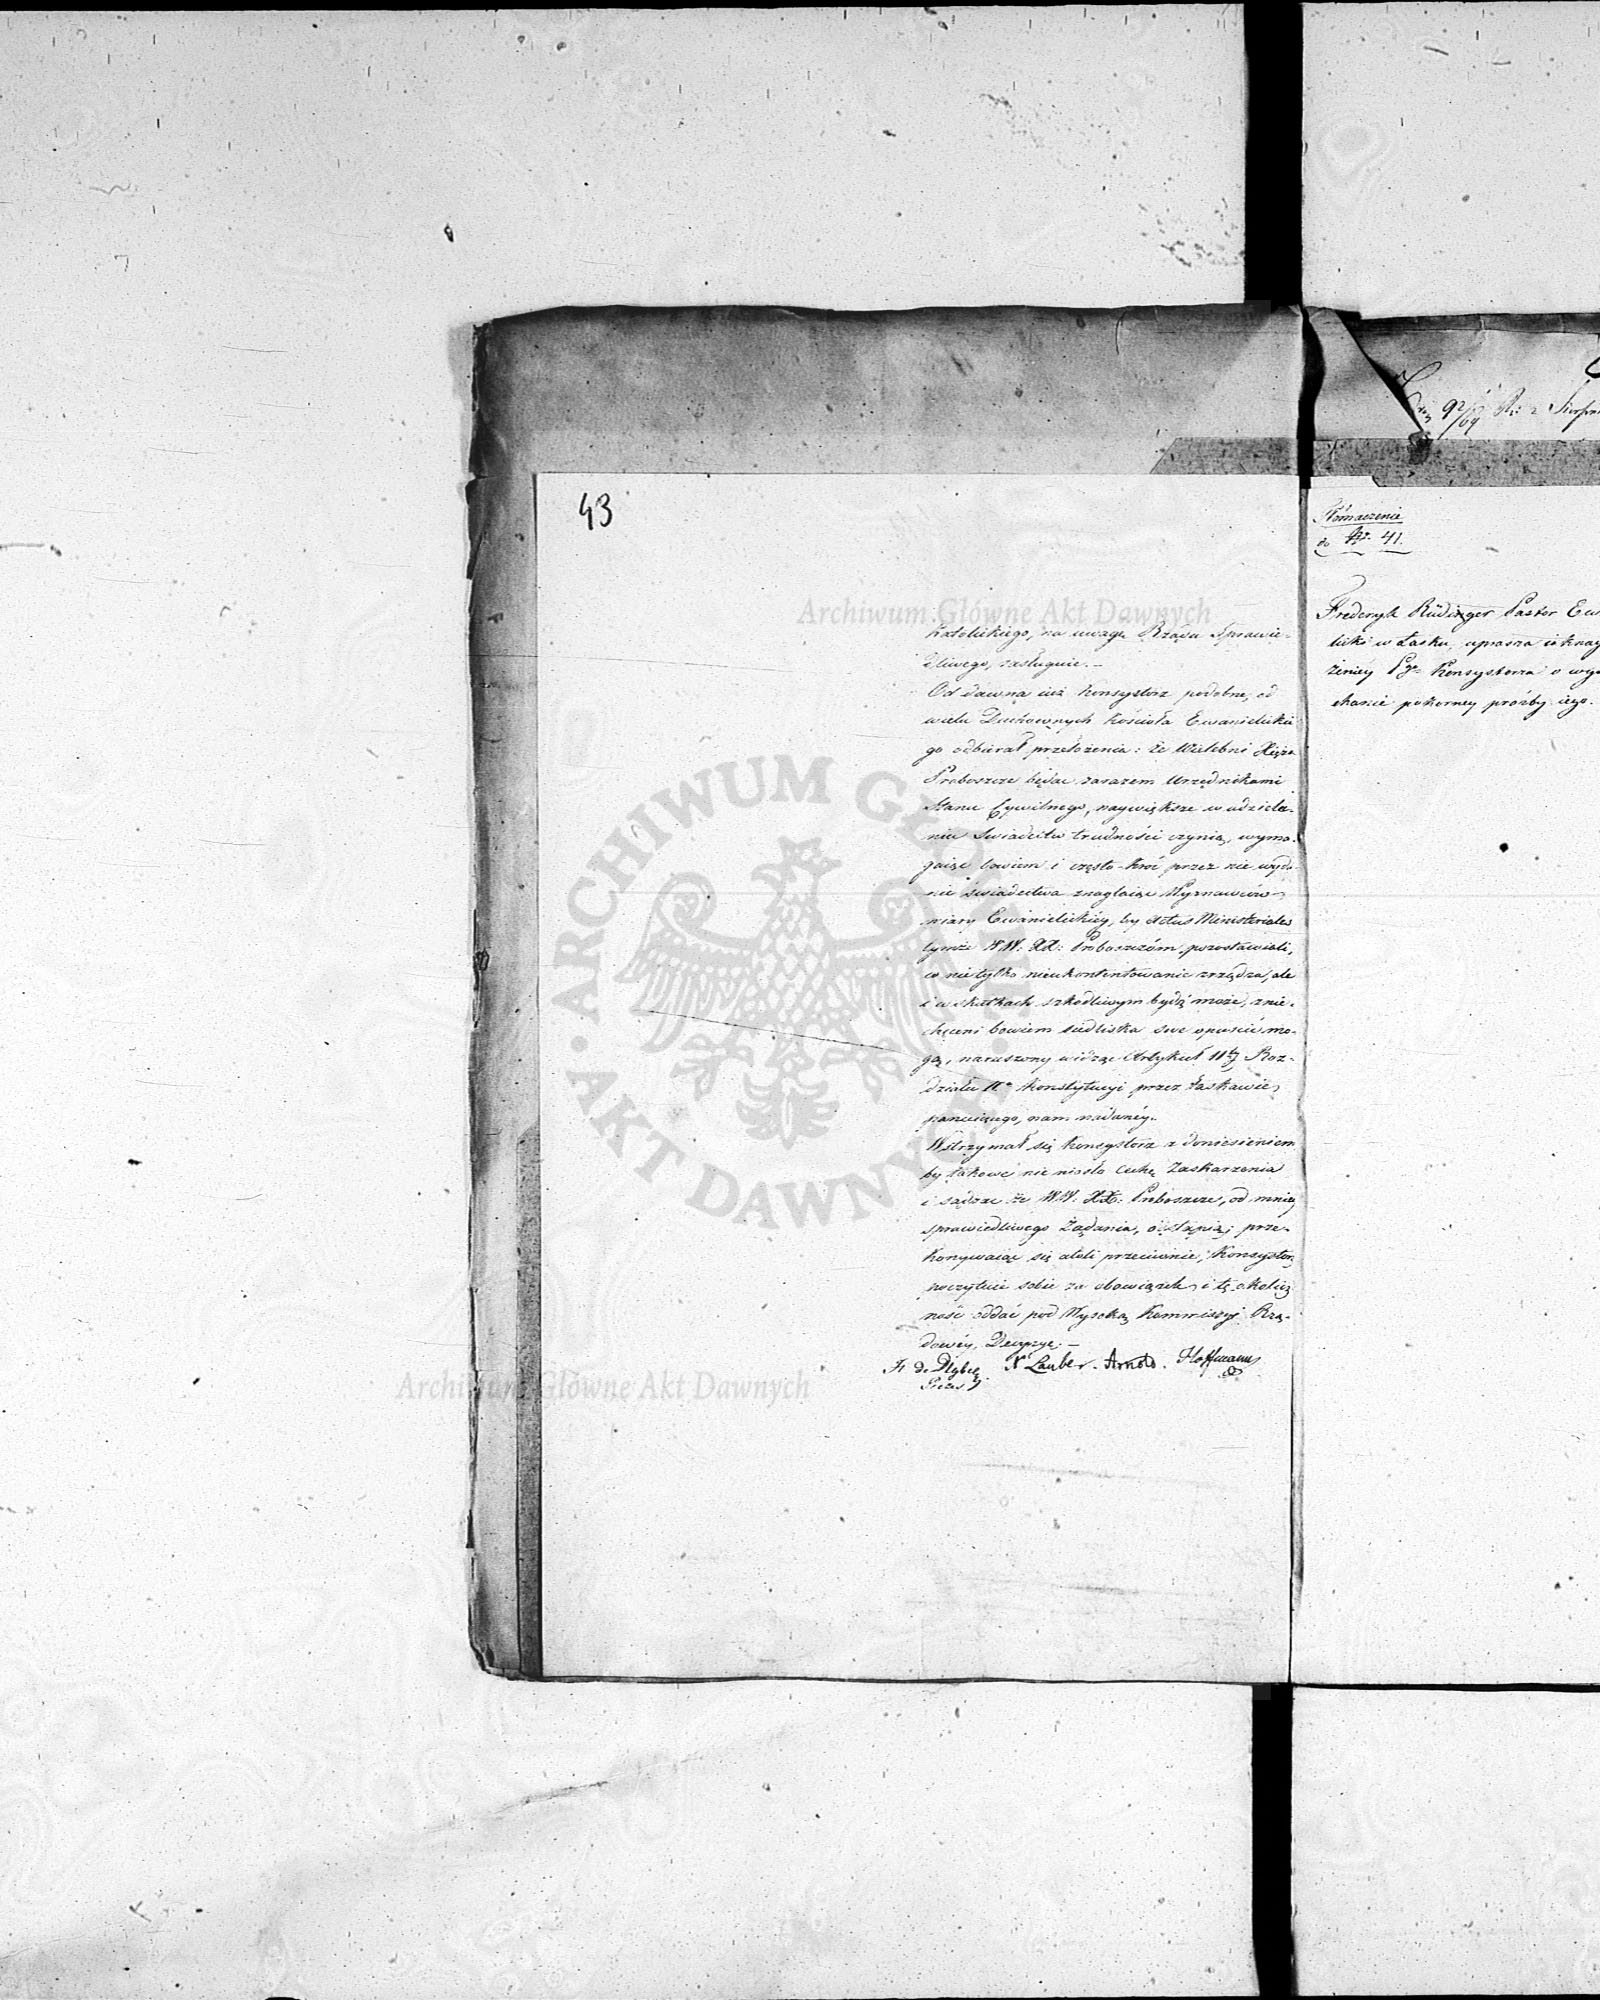 43
Katolickiego, na uwagę Rządu Sprawie-
dliwego, zasługuie.—
Od dawna iuż Konsystorz podobne, od
wielu Duchownych Kościoła Ewanielickie
go odbierał przełożenia: że Wielebni Xięża
Proboszcze będąc zarazem Urzędnikami
Stanu Cywilnego, naywiększe w udziela-
niu Swiadectw trudności czynią, wyma-
gaiąc bowiem i często-kroć przez nie wyda-
nie świadectwa znaglaiąc Wyznawców
wiary Ewanielickiéy, by Actus Ministeriales
tymże WW: XX: Proboszczóm pozostawiali,
co nie tylko nieukontentowanie zrządza, ale
i w skutkach szkodliwym bydź może, znie-
chęceni bowiem siedliska swe opuścić mo-
gą, naruszony widząc Artykuł 11ty Roz-
działu II° Konstytucyi przez łaskawie
panuiącego, nam nadanéy.
Wstrzymał się Konsystorz z doniesieniem
by takowe nie niosło Cechę Zaskarżenia
i sądząc że WW: XX: Proboszcze, od mniéy
sprawiedliwego Żądania, odstąpią; prze-
konywaiąc się ateli przeciwnie, Konsystorz
poczytuie sobie za obowiązek i tę okolicz
ność oddać pod Wysoką Kommissyi Rzą-
dowéy, Decyzyę.—
Fr de Diybię N Lauber. Arnold. Hoffmann
Prezes
92/69 Sierpnia
Tłómaczenie
do Nr. 41.
Frederyk Rüdinger Pastor Ew
licki w Łasku, uprasza iaknay
żeniéy Pgo Konsystorza o wys
chanie pokorney prośby iego.
Archiwum Główne Akt Dawnych
ARCHIWUM GŁÓWNE • AKT DAWNYCH •
Archiwum Główne Akt Dawnych